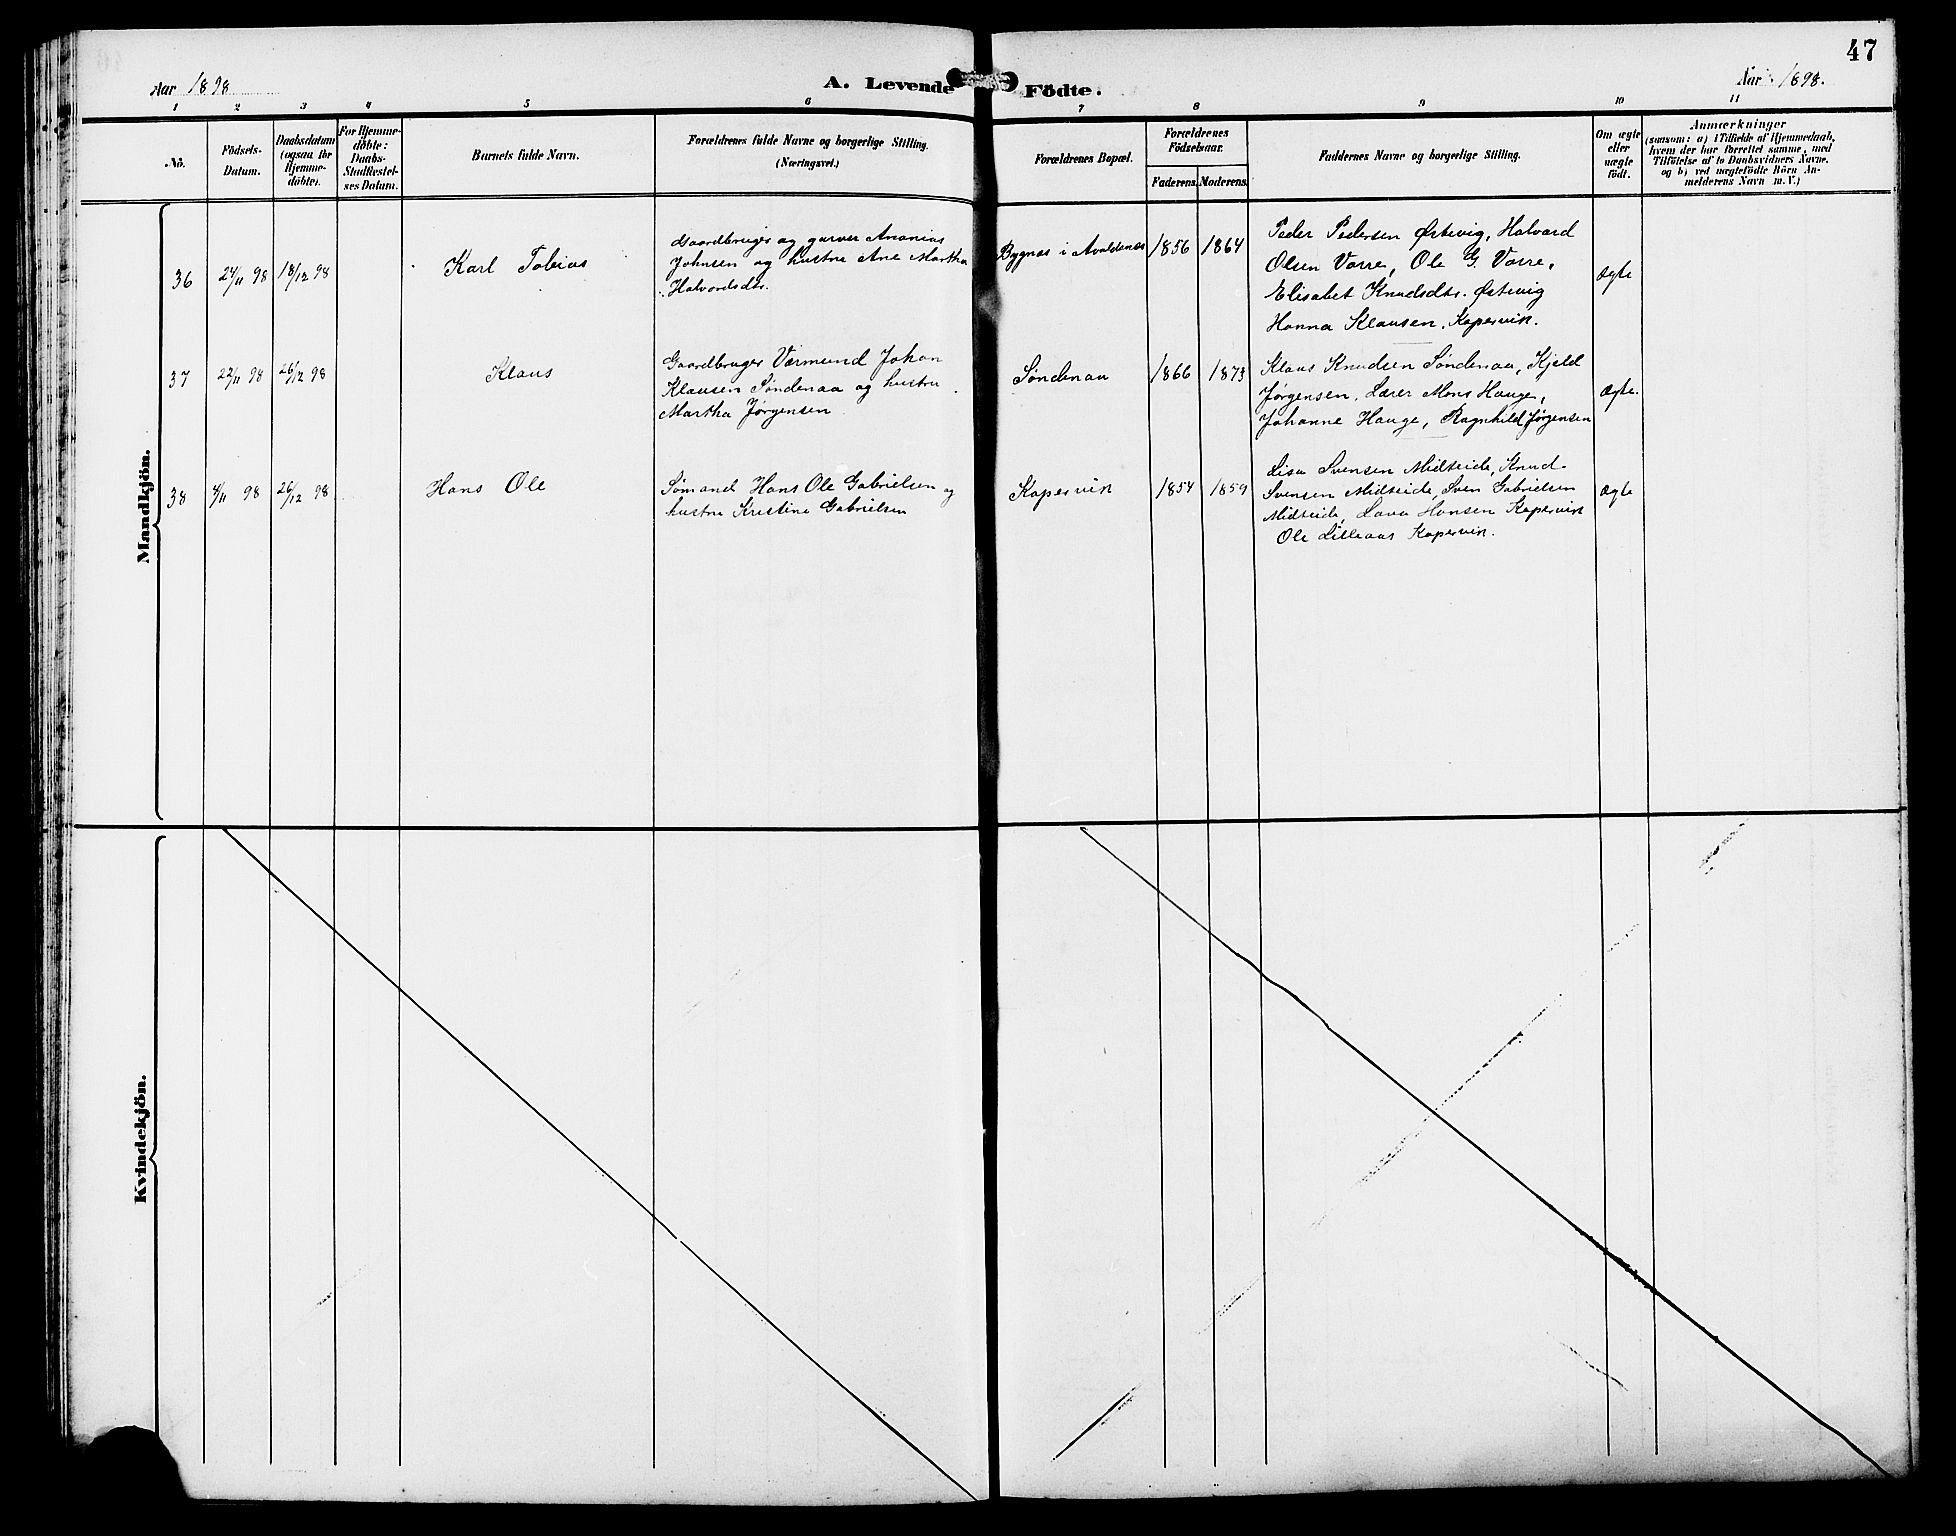 47
Aar 1898
A. Levende Födte.
Aar 1898.
1 2 3 4 5 6 7 8 9 10 11
No.
Födsels-
Datum.
Daabsdatum
(ogsaa for
Hjemme-
döbte).
For Hjemme-
döbte:
Daabs-
Stadfæstel-
ses Datum.
Barnets fulde Navn.
Forældrenes fulde Navne og borgerlige Stilling.
(Næringsvei.)
Forældrenes Bopæl.
Forældrenes
Födselsaar.
Faderens. Moderens.
Faddernes Navne og borgerlige Stilling.
Om ægte
eller
uægte
födt.
Anmærkninger
(saasom: a) i Tilfælde af Hjemmedaab,
hvem der har forrettet samme, med
Tilföielse af to Daabsvidners Navne.
og b) ved uægtefödte Börn An-
melderens Navn m. V.)
Mandkjön.
36
24/11 98
18/12 98
Karl Tobias
Gaardbruger og garver Ananias
Johnsen og hustru Ane Martha
Halvordsdtr.
Bygnæs i Avaldsnæs
1856
1864
Peder Pedersen Østevig, Halvard
Olsen Vorre, Ole G. Vorre,
Elisabet Knudsdtr. Østevig
Hanna Klausen, Kopervik.
ægte
37
22/11 98
26/12 98
Klaus
Gaardbruger Værmund Johan
Klausen Søndenaa og hustru
Martha Jørgensen
Søndenaa
1866
1873
Klaus Knudsen Søndenaa, Kjeld
Jørgensen, Lærer Mons Hauge,
Johanne Hauge, Ragnhild Jørgensen
ægte.
38
4/11 98
26/12 98
Hans Ole
Sømand Hans Ole Gabrielsen og
hustru Kristine Gabrielsen
Kopervik
1854
1859
Lisa Svensen Midteide, Knud
Svensen Midteide, Sven Gabrielsen
Midteide, Hansen Kopervik
Ole Lilleaas Kopervik.
ægte
Kvindekjön.